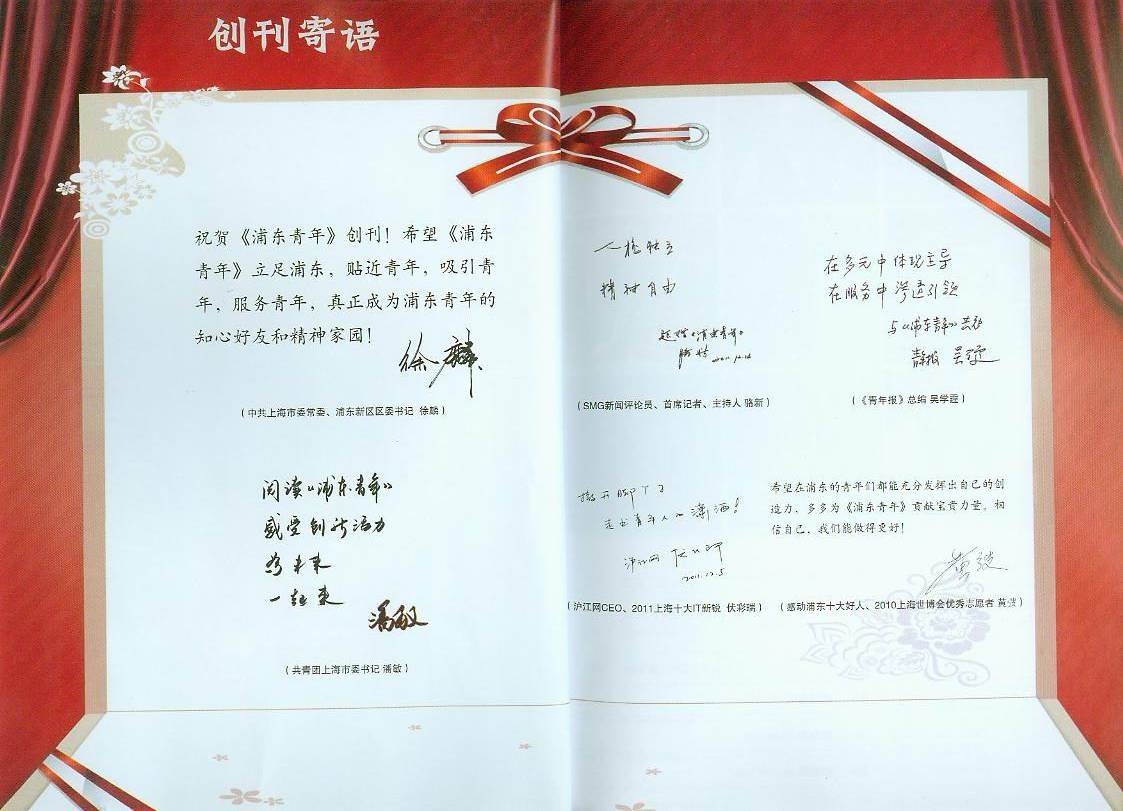 创刊寄语
祝贺《浦东青年》创刊！希望《浦东
青年》立足浦东，贴近青年，吸引青
年，服务青年，真正成为浦东青年的
知心好友和精神家园！
徐麟
（中共上海市委常委、浦东新区区委书记 徐麟）
阅读《浦东青年》
感受创新活力
为未来
一起来
潘敏
（共青团上海市委书记 潘敏）
人格独立
精神自由
《浦东青年》
骆新
（SMG新闻评论员、首席记者、主持人 骆新）
在多元中体现主导
在服务中渗透引领
与《浦东青年》共勉
青年报 吴学霆
（《青年报》总编 吴学霆）
撒开脚丫子
走出青年人的潇洒！
沪江网 伏彩瑞
2011.12.5
（沪江网CEO、2011上海十大IT新锐 伏彩瑞）
希望在浦东的青年们都能充分发挥出自己的创
造力，多多为《浦东青年》贡献宝贵力量。相
信自己，我们能做得更好！
（感动浦东十大好人、2010上海世博会优秀志愿者 黄）